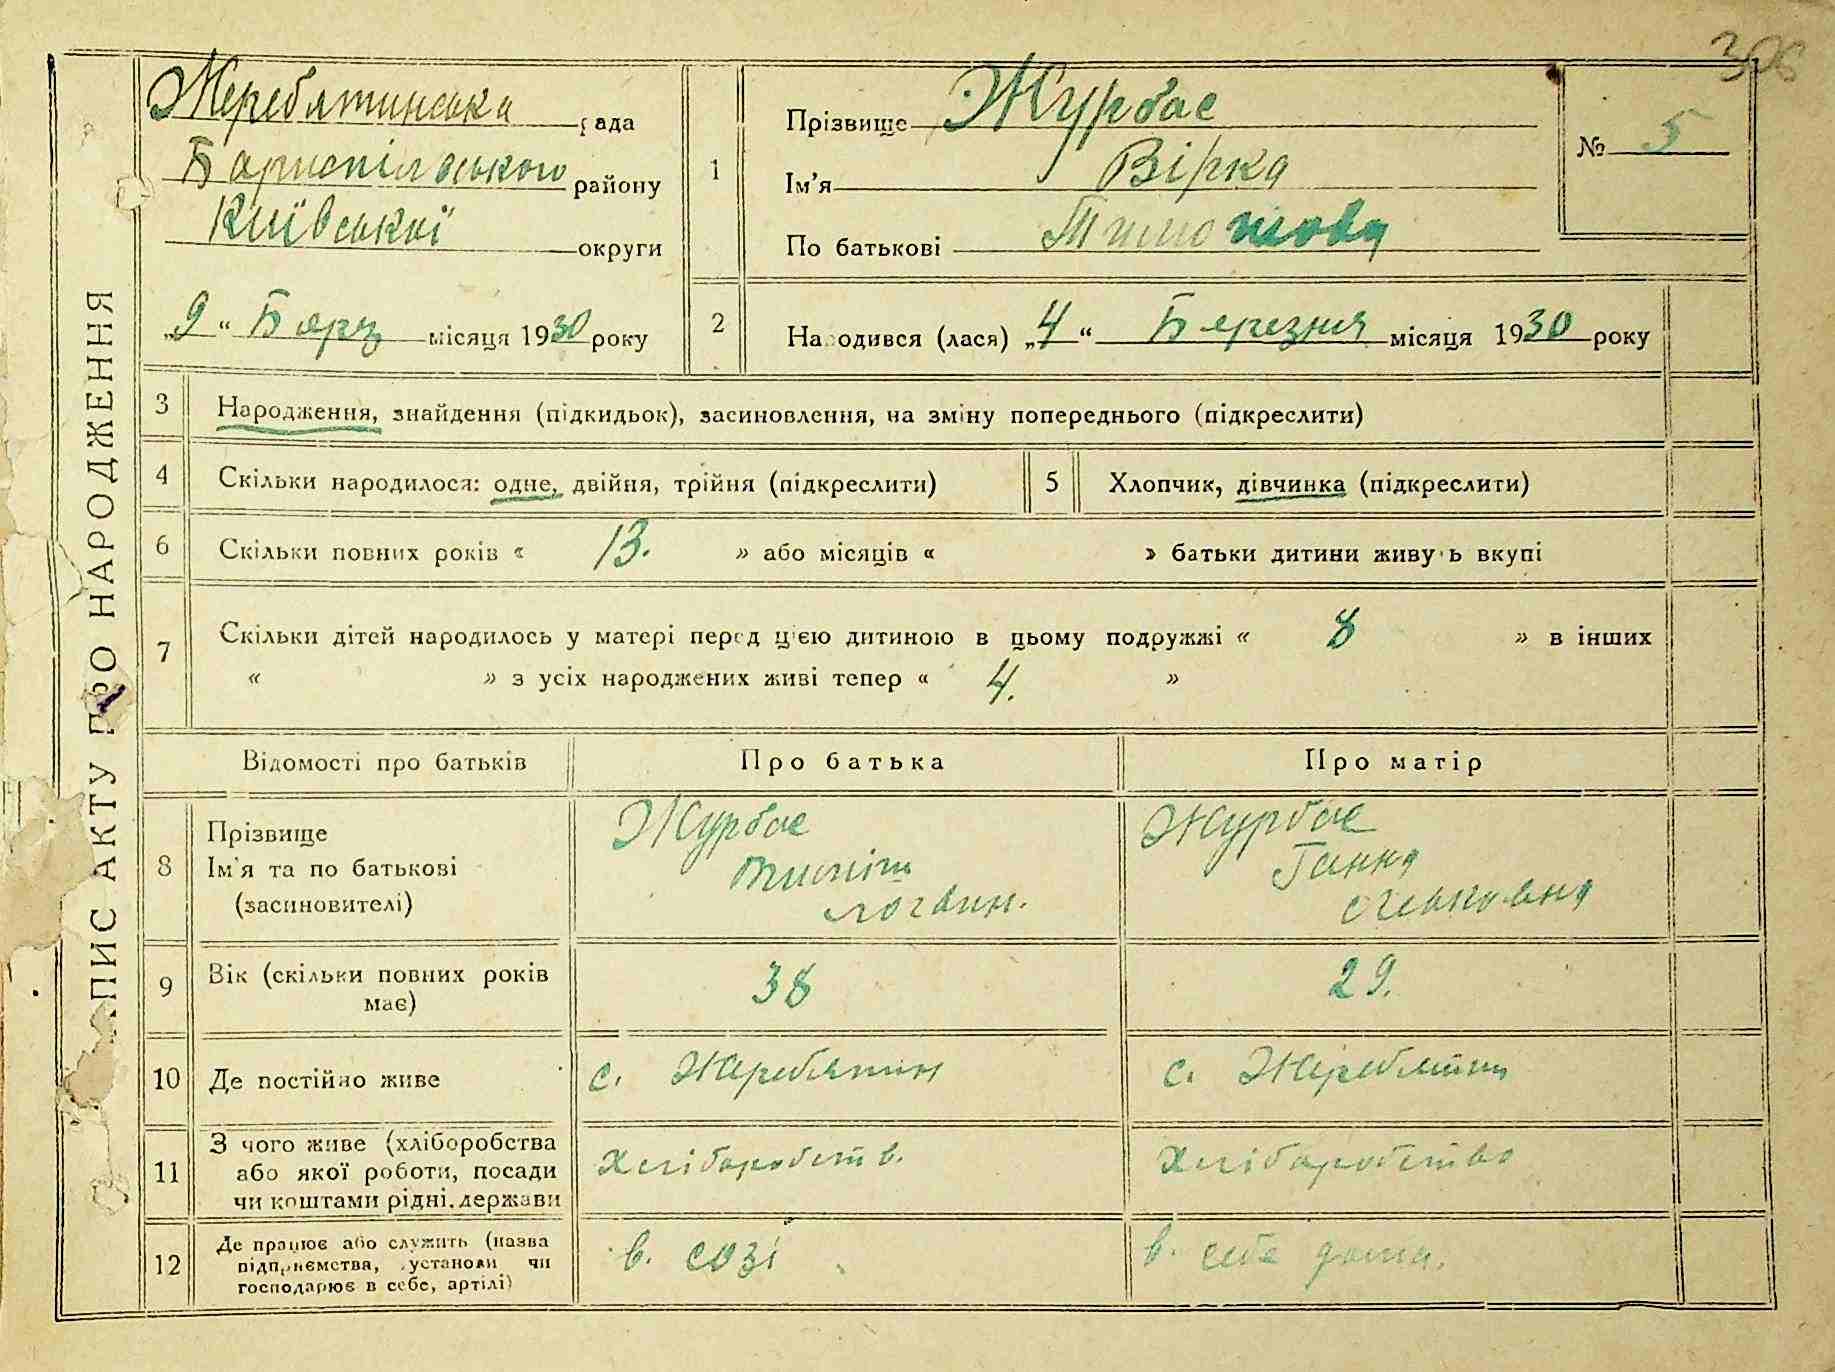 306
Жереблятинська рада
Бариспільського району
Київської округи
„9“ Бярз місяця 1930 року
1
Прізвище Журбас
Ім'я Вірка
По батькові Тимошова
№ 5
2
Народився (лася) „4“ Бярезня місяця 1930 року
ЗАПИС АКТУ ПРО НАРОДЖЕННЯ
3 Народження, знайдення (підкидьок), засиновлення, на зміну попереднього (підкреслити)
4 Скільки народилося: одне, двійня, трійня (підкреслити)
5 Хлопчик, дівчинка (підкреслити)
6 Скільки повних років « 13. » або місяців « » батьки дитини живуть вкупі
7 Скільки дітей народилось у матері перед цією дитиною в цьому подружжі « 8 » в інших
« » з усіх народжених живі тепер « 4. »
Відомості про батьків
Про батька
Про матір
8 Прізвище
Ім'я та по батькові
(засиновителі)
Журбас
логвин.
Журбас
Ганна
9 Вік (скільки повних років
має)
38
29.
10 Де постійно живе
с. Жереблятин
с. Жереблятин
11 З чого живе (хліборобства
або якої роботи, посади
чи коштами рідні, держави
хлібаробств.
Хлібаробство
12 Де працює або служить (назва
підприємства, установи чи
господарює в себе, артілі)
в. созі
в. себе дома.